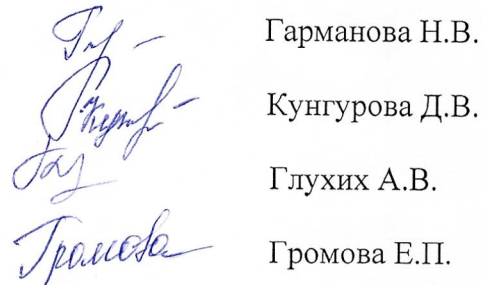 Гарманова Н.В.
Кунгурова Д.В.
Глухих А.В.
Громова Громова Е.П.